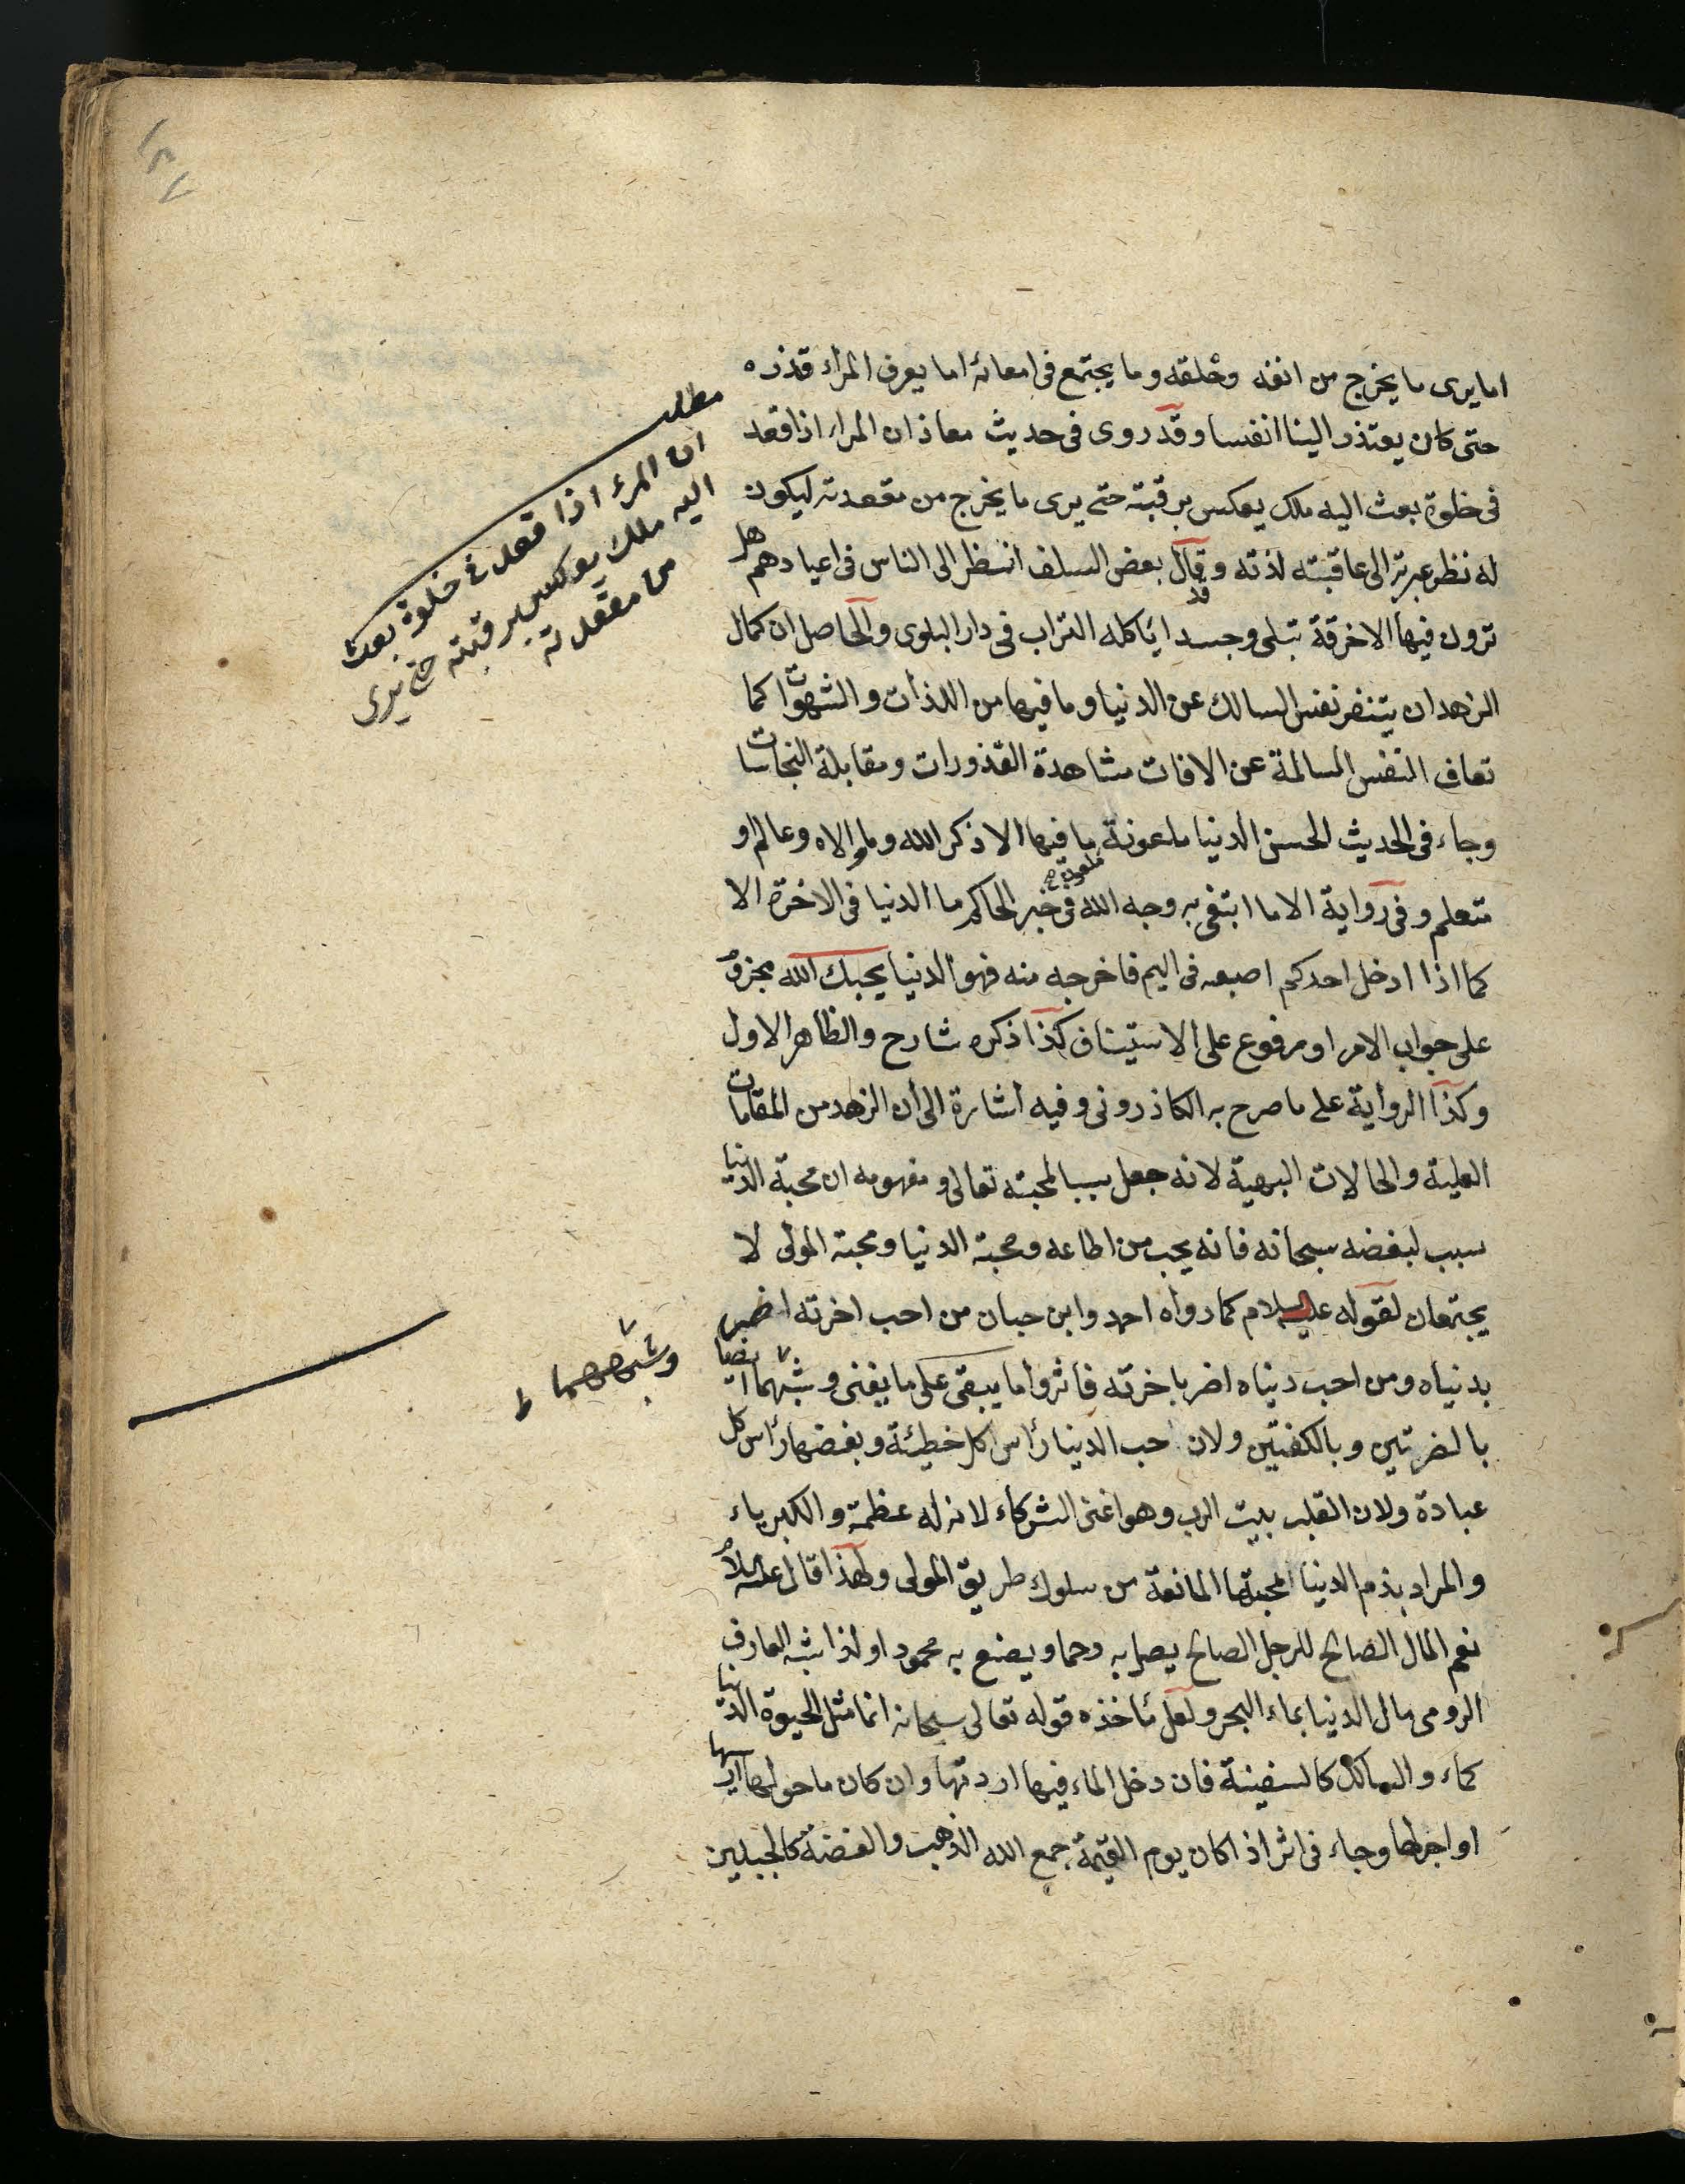 اما يرى ما يخرج من انفه وحلقه وما يجتمع فى امعائه اما يعرف المراء قذره
حتى كان يعتذر الينا انفسا وقد روى فى حديث معاذ ان المراء اذا قعد
فى خلوة بعث اليه ملك يعكس برقبته حتى يرى ما يخرج من مقعدته ليكون
له نظر عبرة الى عاقبته لذته وقال بعض السلف انسظر الى الناس فى اعيادهم هل
ترون فيها الا خرقة تبلى وجسدا ياكله التراب فى دار البلوى والحاصل ان كمال
الزهد ان يتنفر نفس السالك عن الدنيا وما فيها من اللذات والشهوات كما
تعاف النفس السالمة عن الافات مشاهدة القذورات ومقابلة النجاسات
وجاء فى الحديث الحسن الدنيا ملعونة ما فيها الا ذكر الله وما والاه وعالم او
متعلم وفى رواية الا ما ابتغى به وجه الله فى خبر الحاكم ما الدنيا فى الاخرة الا
كما اذا ادخل احدكم اصبعه فى اليم فاخرجه منه فهو الدنيا يحبك الله مجزوم
على جواب الامر او مرفوع على الاستيناف كذا ذكره شارح والظاهر الاول
وكذا الرواية على ما صرح به الكاذرونى وفيه اشارة الى ان الزهد من المقامات
العلية والحالات البهية لانه جعل سببا لمحبته تعالى ومفهومه ان محبة الدنيا
سبب لبغضه سبحانه فانه يحب من اطاعه ومحبة الدنيا ومحبة المولى لا
يجتمعان لقوله عليه السلام كما رواه احمد وابن حبان من احب اخرته اضر
بدنياه ومن احب دنياه اضر باخرته فاثروا ما يبقى على ما يفنى وشبهما ايضا
بالضرتين وبالكفتين ولان حب الدنيا رأس كل خطيئة وبغضها رأس كل
عبادة ولان القلب بيت الرب وهو اغنى الشركاء لانه له عظمة والكبرياء
والمراد بذم الدنيا المحبتها المانعة من سلوك طريق المولى ولهذا قال عليه السلام
نعم المال الصالح للرجل الصالح يصل به رحما ويصنع به محمودا ولذا شبه العارف
الرومى مال الدنيا بماء البحر ولعل مأخذه قوله تعالى سبحانه انما مثل الحيوة الدنيا
كماء والسالك كالسفينة فان دخل الماء فيها اردتها وان كان ما حولها ارسها
او اجراها وجاء فى اثر اذا كان يوم القيمة جمع الله الذهب والفضة كالجبلين
ملعون
مطلب
ان المرء اذا قعد فى خلوة بعث
اليه ملك يعكس برقبته حتى يرى
من مقعدته